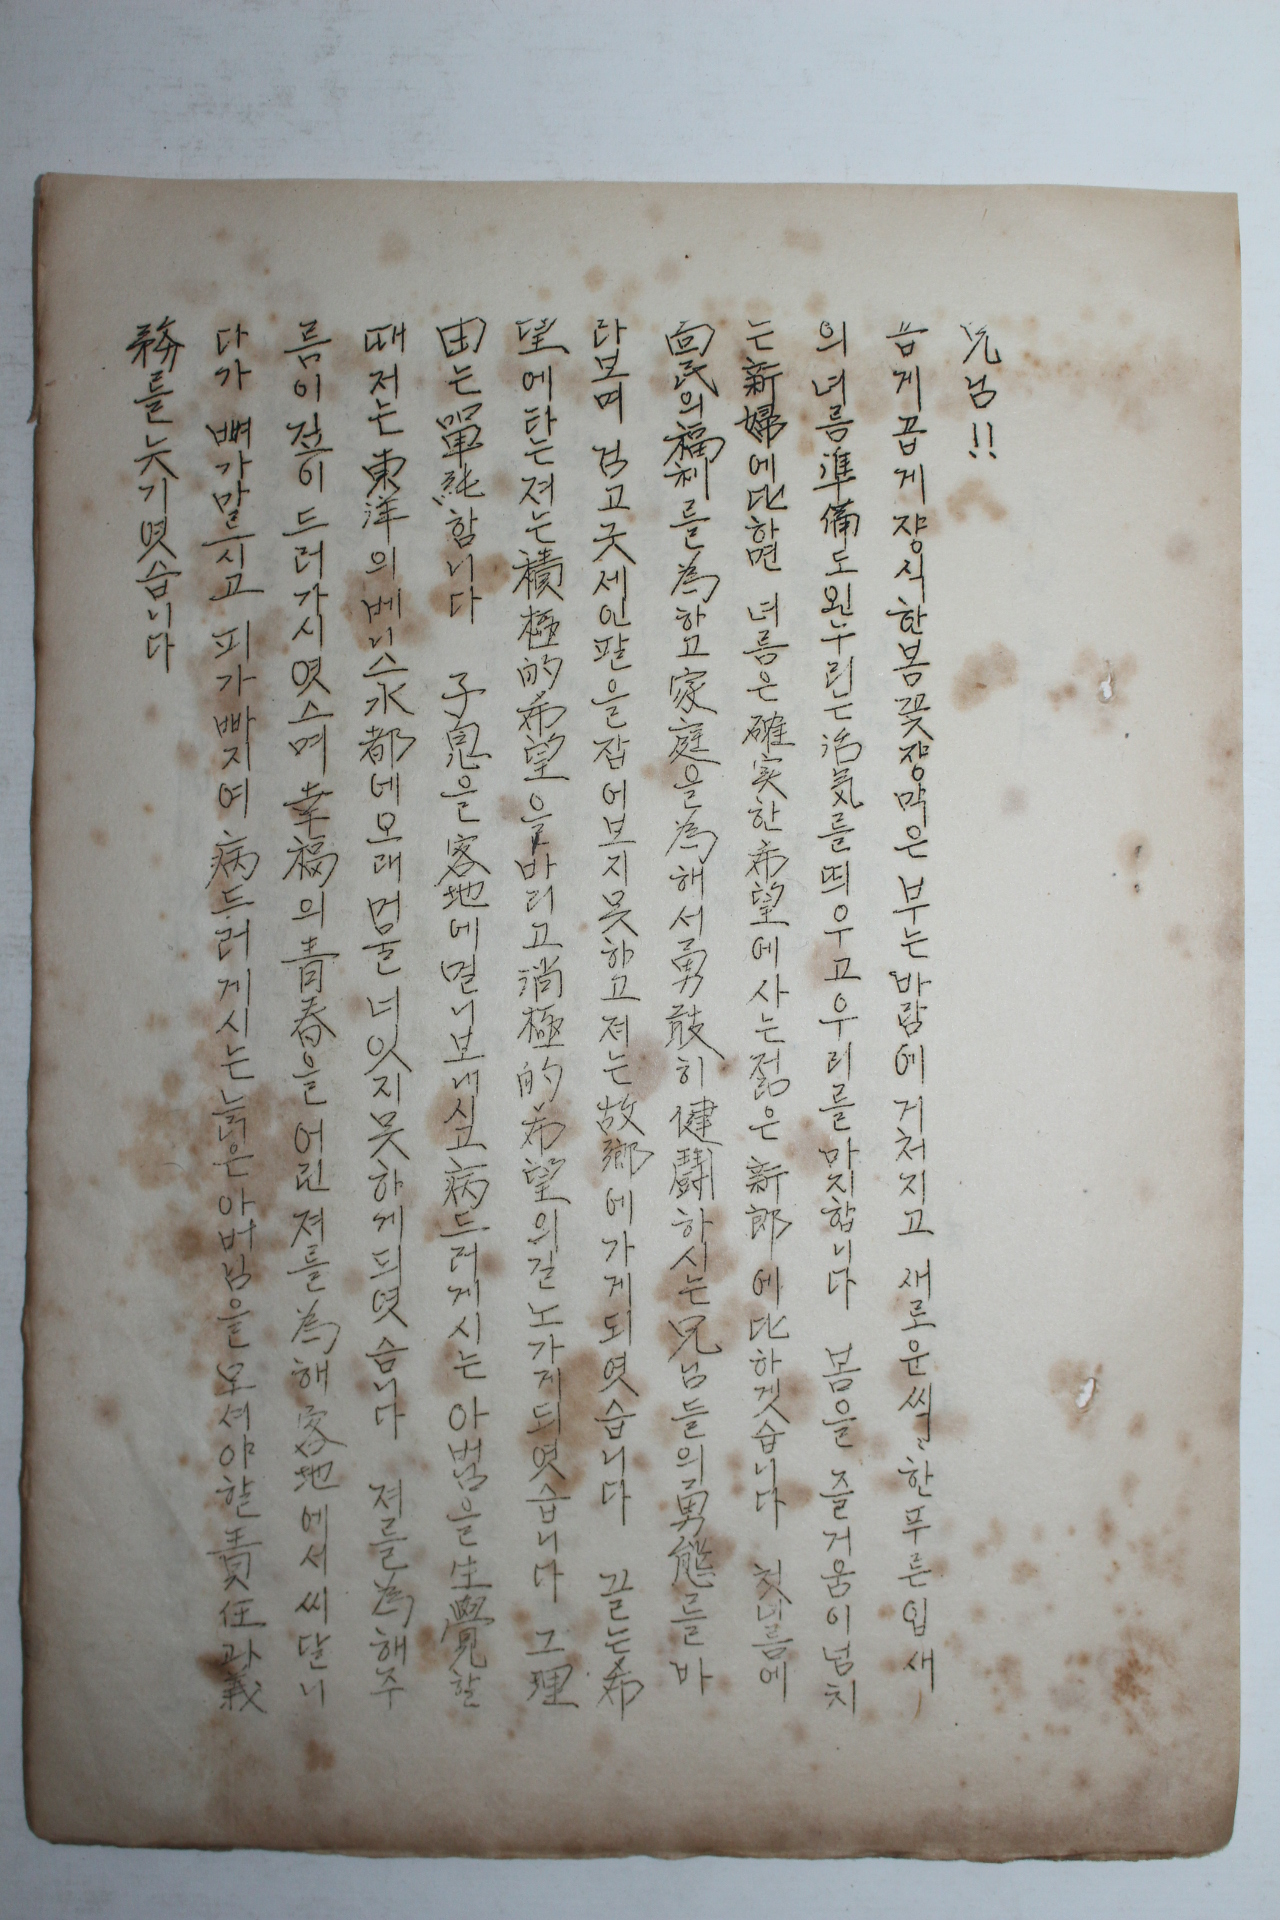 兄님!!
슴게 곱게 쟝식한 봄 꽃쟝막은 부는 바람에 거처지고 새로운 씩〃한 푸른 입새
의 녀름 準備도 왼 우리는 活気를 띄우고 우리를 마지합니다 봄을 즐거움이 넘치
는 新婦에 比하면 녀름은 確実한 希望에 사는 젊은 新郎에 比하겟습니다 첫녀름에
面民의 福利를 爲하고 家庭을 爲해서 勇敢히 健鬪하시는 兄님들의 勇態를 바
라보며 검고 굿세인 팔을 잡어보지 못하고 져는 故鄕에 가게 되엿습니다 끌는 希
望에 타는 져는 積極的 希望을 바리고 消極的 希望의 길노 가게 되엿습니다 그 理
由는 單純함니다 子息을 客地에 멀니 보내싣고 病드러 게시는 아범을 生覺할
때 저는 東洋의 베니스 水都에 오래 머물너 잇지 못하게 되엿슴니다 져를 爲해 주
름이 깊이 드러가시엿스며 幸福의 靑春을 어린 져를 爲해 客地에서 씨달니
다가 뼈가 말르시고 피가 빠지여 病드러 게시는 늙은 아버님을 모셔야 할 責任과 義
務를 늣기엿습니다